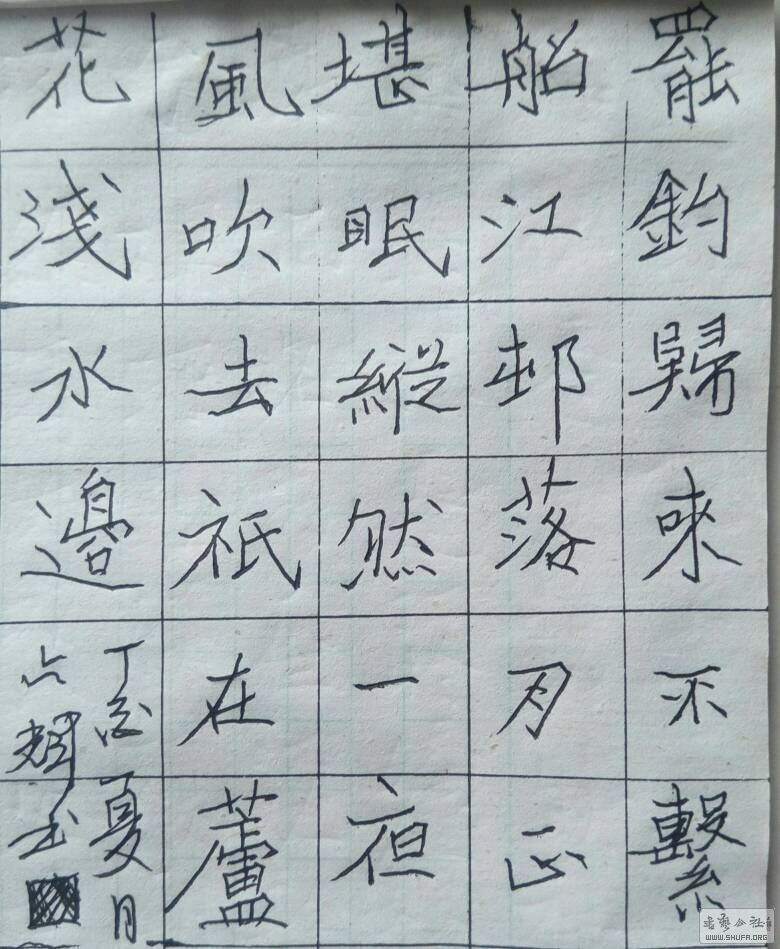 罷釣歸來不繫
船江邨落月正
堪眠縱然一夜
風吹去祇在蘆
花淺水邊
丁酉夏月
书艺公社
WWW.SHUFA.ORG